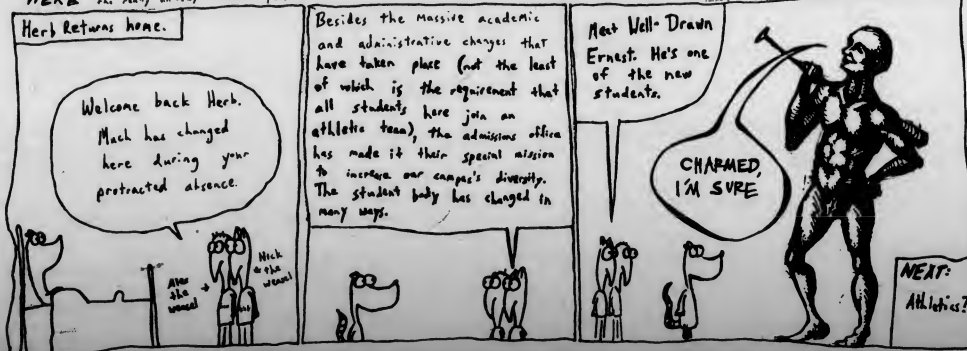 HERE
Herb Returns home.
Welcome back Herb.
Much has changed
here during your
protracted absence.
Alex
the
weasel
Nick
the
weasel
Besides the massive academic
and administrative changes that
have taken place (not the least
of which is the requirement that
all students here join an
athletic team), the admissions office
has made it their special mission
to increase our campus's diversity.
The student body has changed in
many ways.
Meet Well-Drawn
Ernest. He's one
of the new
students.
CHARMED,
I'M SURE
NEXT:
Athletics?